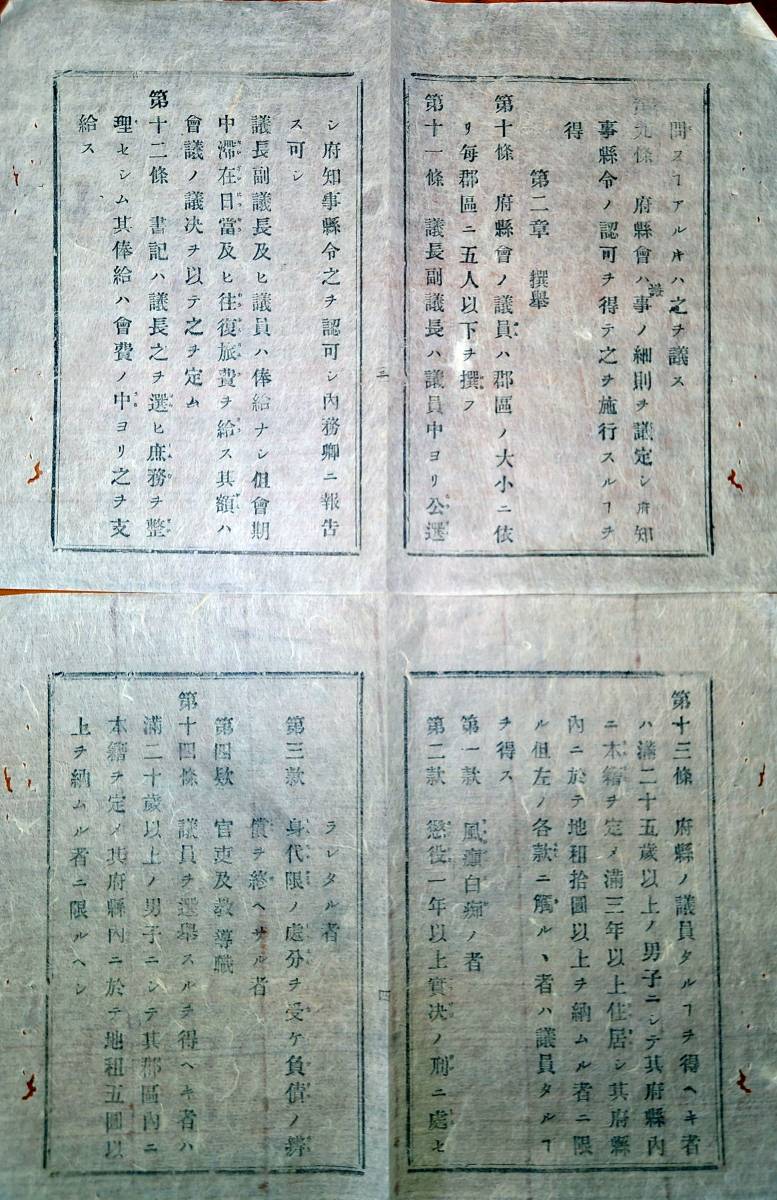 問スヿアルキハ之ヲ議ス
第九條 府縣會ハ議事ノ細則ヲ議定シ府知
事縣令ノ認可ヲ得テ之ヲ施行スルヿヲ
得
第二章 撰擧
第十條 府縣會ノ議員ハ郡區ノ大小ニ依
リ毎郡區ニ五人以下ヲ撰フ
第十一條 議長副議長ハ議員中ヨリ公選
三
シ府知事縣令之ヲ認可シ内務卿ニ報告
ス可シ
議長副議長及ヒ議員ハ俸給ナシ但會期
中滯在日當及ヒ往復旅費ヲ給ス其額ハ
會議ノ議決ヲ以テ之ヲ定ム
第十二條 書記ハ議長之ヲ選ヒ庶務ヲ整
理セシム其俸給ハ會費ノ中ヨリ之ヲ支
給ス
第十三條 府縣ノ議員タルヿヲ得ヘキ者
ハ滿二十五歲以上ノ男子ニシテ其府縣內
ニ本籍ヲ定メ滿三年以上住居シ其府縣
內ニ於テ地租拾圓以上ヲ納ムル者ニ限
ル但左ノ各款ニ觸ルヽ者ハ議員タルヿ
ヲ得ス
第一款 風癲白痴ノ者
第二款 懲役一年以上實决ノ刑ニ處セ
四
ラレタル者
第三款 身代限ノ處分ヲ受ケ負債ノ辨
償ヲ終ヘサル者
第四欵 官吏及敎導職
第十四條 議員ヲ選擧スルヲ得ヘキ者ハ
滿二十歲以上ノ男子ニシテ其郡區內ニ
本籍ヲ定メ其府縣內ニ於テ地租五圓以
上ヲ納ムル者ニ限ルヘシ